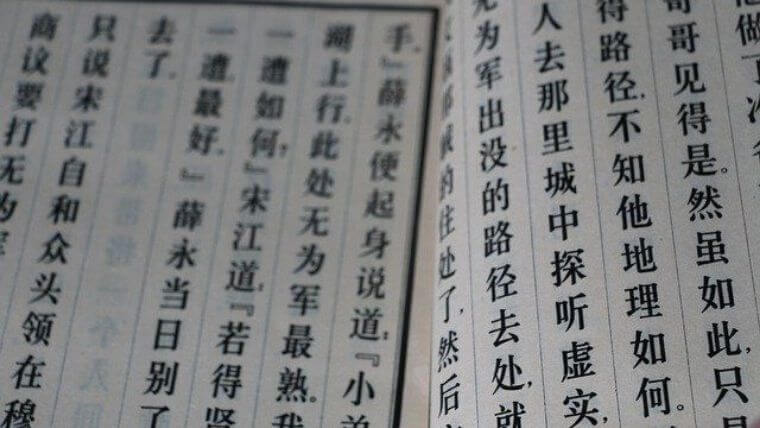 做了冷
哥哥见得是。然虽如此,只是
得路径,不知他地理如何。
人去那里城中探听虚实,
无为军出没的路径去处,就
的住处了,然后
手。』薛永便起身说道:『小弟
湖上行。此处无为军最熟。我
一遭如何?』宋江道:『若得贤
一遭最好。』薛永当日别了
去了。
只说宋江自和众头领在穆
商议要打无为军